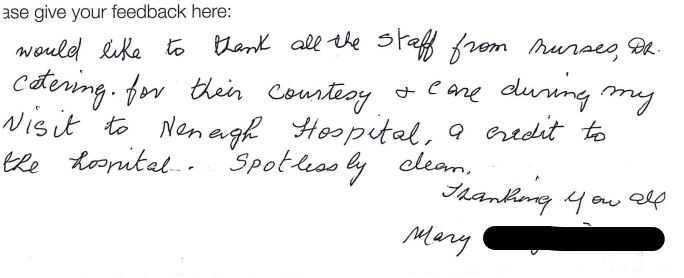 ase give your feedback here:
would like to thank all the staff from nurses, DR.
Catering. for their Courtesy & Care during my
Visit to Nenagh Hospital, a credit to
the hospital. Spotlessly clean.
Thanking you all
Mary